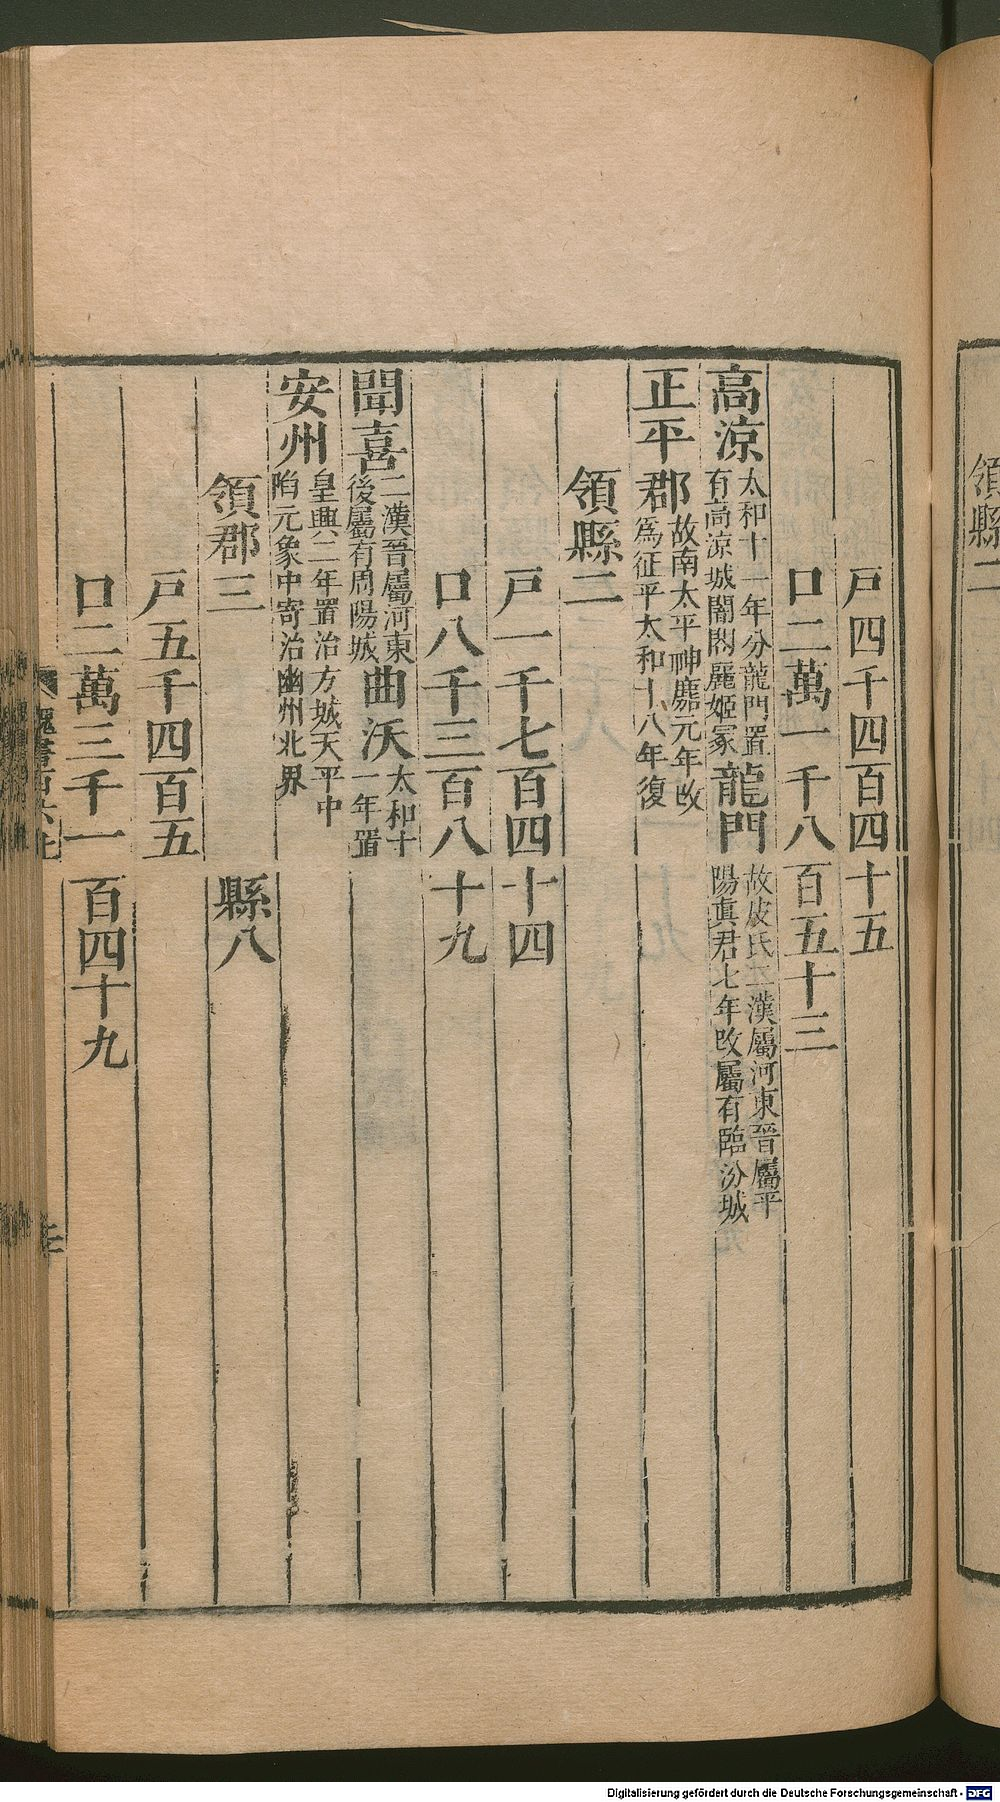 領縣二
戸四千四百四十五
口二萬一千八百五十三
高涼太和十一年分龍門置有高涼城闇悶麗姬冢龍門故皮氏二漢屬河東晉屬平陽眞君七年改屬有臨汾城
正平郡故南太平神䴥元年改爲征平太和十八年復
領縣二
戸一千七百四十四
口八千三百八十九
聞喜二漢晉屬河東後屬有周陽城曲沃太和十一年置
安州皇興二年置治方城天平中陷元象中寄治幽州北界
領郡三 縣八
戸五千四百五
口二萬三千一百四十九
魏書百六上
Digitalisierung gefördert durch die Deutsche Forschungsgemeinschaft - DFG